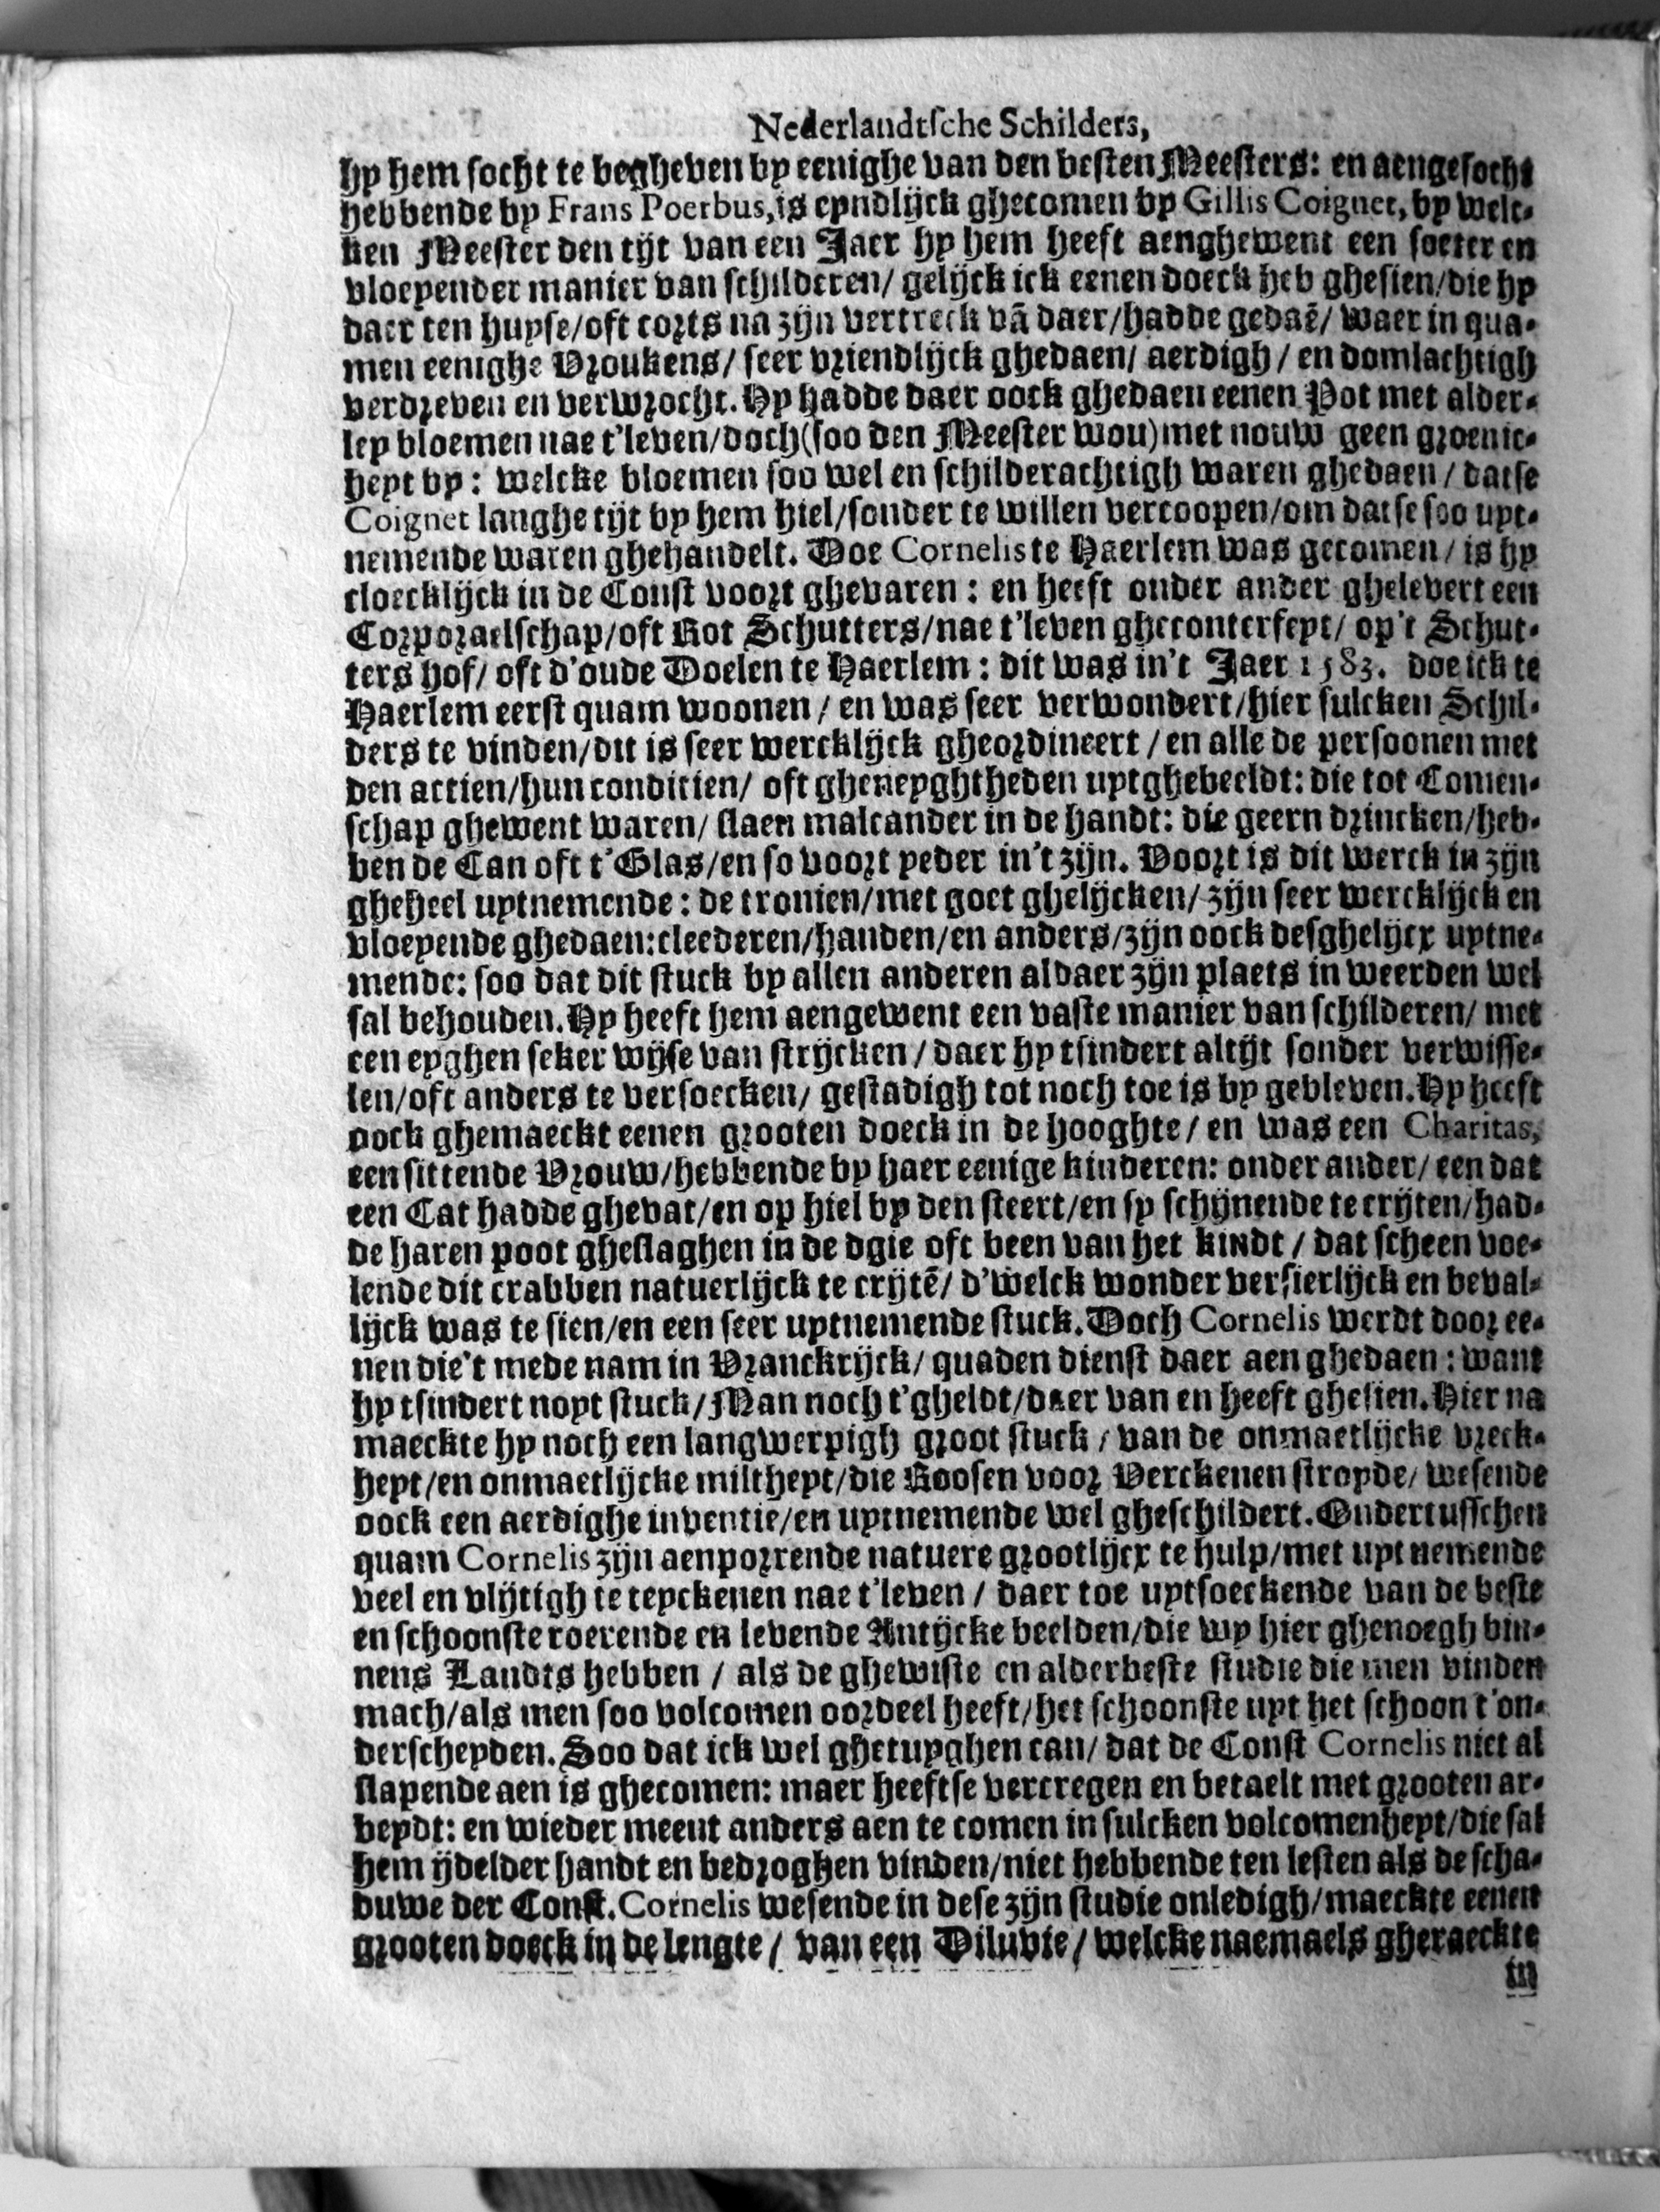 Nederlandtsche Schilders,
hy hem socht te begheven by eenighe van den besten Meesters: en aengesocht
hebbende by Frans Poerbus, is eyndlijck ghecomen by Gillis Coignet, by welc-
ken Meester den tijt van een Jaer hy hem heeft aenghewent een soeter en
vloeyender manier van schilderen/ gelijck ick eenen doeck heb ghesien/die hy
daer ten huyse/oft corts na zijn vertreck vā daer/hadde gedaē/ waer in qua-
men eenighe Vroukens/ seer vriendlijck ghedaen/ aerdigh / en domlachtigh
verdreven en verwrocht. Hy hadde daer oock ghedaen eenen Pot met alder-
ley bloemen nae t'leven/doch(soo den Meester wou)met nouw geen groenic-
heyt by: welcke bloemen soo wel en schilderachtigh waren ghedaen / datse
Coignet langhe tijt by hem hiel/sonder te willen vercoopen/om datse soo uyt-
nemende waren ghehandelt. Doe Cornelis te Haerlem was gecomen / is hy
cloecklijck in de Const voort ghevaren: en heeft onder ander ghelevert een
Corporaelschap/oft Rot Schutters/nae t'leven gheconterfeyt/ op't Schut-
ters hof/ oft d'oude Doelen te Haerlem: dit was in't Jaer 1583. doe ick te
Haerlem eerst quam woonen / en was seer verwondert/hier sulcken Schil-
ders te vinden/dit is seer wercklijck gheordineert / en alle de persoonen met
den actien/hun conditien/ oft gheneyghtheden uytghebeeldt: die tot Comen-
schap ghewent waren/ slaen malcander in de handt: die geern drincken/heb-
ben de Can oft t'Glas/en so voort yeder in't zijn. Voort is dit werck in zijn
gheheel uytnemende: de tronien/met goet ghelijcken/ zijn seer wercklijck en
vloeyende ghedaen:cleederen/handen/en anders/zijn oock desghelijcx uytne-
mende: soo dat dit stuck by allen anderen aldaer zijn plaets in weerden wel
sal behouden. Hy heeft hem aengewent een vaste manier van schilderen/ met
een eyghen seker wijse van strijcken / daer hy tsindert altijt sonder verwisse-
len/oft anders te versoecken/ gestadigh tot noch toe is by gebleven. Hy heeft
oock ghemaeckt eenen grooten doeck in de hooghte / en was een Charitas,
een sittende Vrouw/hebbende by haer eenige kinderen: onder ander/ een dat
een Cat hadde ghevat/en op hiel by den steert/en sy schijnende te crijten/had-
de haren poot gheslaghen in de dgie oft been van het kindt / dat scheen voe-
lende dit crabben natuerlijck te crijtē/ d'welck wonder versierlijck en beval-
lijck was te sien/en een seer uytnemende stuck. Doch Cornelis werdt door ee-
nen die't mede nam in Vranckrijck/ quaden dienst daer aen ghedaen: want
hy tsindert noyt stuck/Man noch t'gheldt/daer van en heeft ghesien. Hier na
maeckte hy noch een langwerpigh groot stuck / van de onmaetlijcke vreck-
heyt/en onmaetlijcke miltheyt/die Roosen voor Verckenen stroyde/ wesende
oock een aerdighe inventie/en uytnemende wel gheschildert. Ondertusschen
quam Cornelis zijn aenporrende natuere grootlijcx te hulp/met uytnemende
veel en vlijtigh te teyckenen nae t'leven / daer toe uytsoeckende van de beste
en schoonste roerende en levende Antijcke beelden/die wy hier ghenoegh bin-
nens Landts hebben / als de ghewiste en alderbeste studie die men vinden
mach/als men soo volcomen oordeel heeft/het schoonste uyt het schoon t'on-
derscheyden. Soo dat ick wel ghetuyghen can/ dat de Const Cornelis niet al
slapende aen is ghecomen: maer heeftse vercregen en betaelt met grooten ar-
beydt: en wieder meent anders aen te comen in sulcken volcomenheyt/die sal
hem ijdelder handt en bedroghen vinden/niet hebbende ten lesten als de scha-
duwe der Const. Cornelis wesende in dese zijn studie onledigh/maeckte eenen
grooten doeck in de lengte / van een Diluvie / welcke naemaels gheraeckte
in